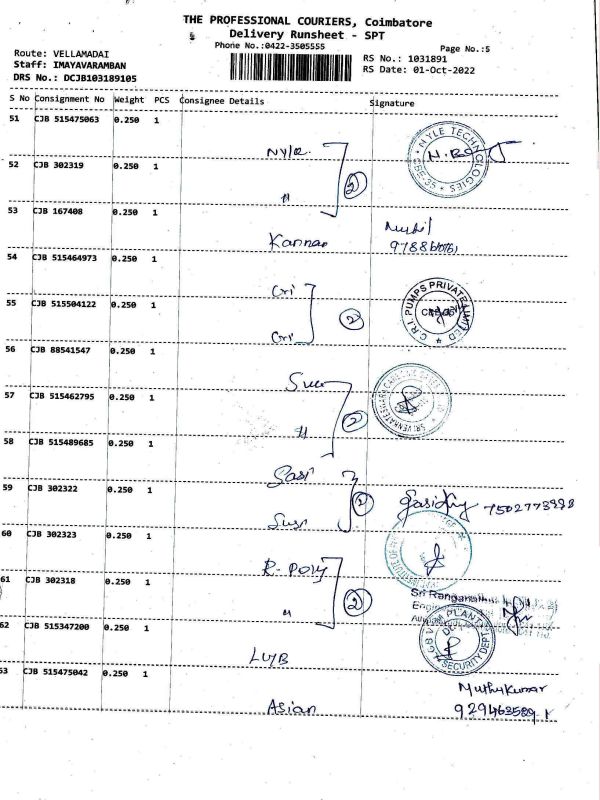 THE PROFESSIONAL COURIERS, Coimbatore
Delivery Runsheet - SPT
Phone No.:0422-3505555
Page No.:5
Route: VELLAMADAI
Staff: IMAYAVARAMBAN
DRS No.: DCJB103189105
RS No.: 1031891
RS Date: 01-Oct-2022
S No Consignment No Weight PCS Consignee Details Signature
51 CJB 515475063 0.250 1
Nyle
NYLE TECHNOLOGIES
CBE-35
52 CJB 302319 0.250 1
"
2
53 CJB 167408 0.250 1
Kannan
54 CJB 515464973 0.250 1
Cri
C.R.I. PUMPS PRIVATE LIMITED
55 CJB 515504122 0.250 1
Cri
2
56 CJB 88541547 0.250 1
57 CJB 515462795 0.250 1
"
2
58 CJB 515489685 0.250 1
Sasi
59 CJB 302322 0.250 1
2
60 CJB 302323 0.250 1
R. Poly
61 CJB 302318 0.250 1
"
2
Sri Ranganathar
62 515347200 0.250 1
LMB
PLANT
SECURITY DEPT
53 CJB 515475042 0.250 1
Asian
Muthukumar